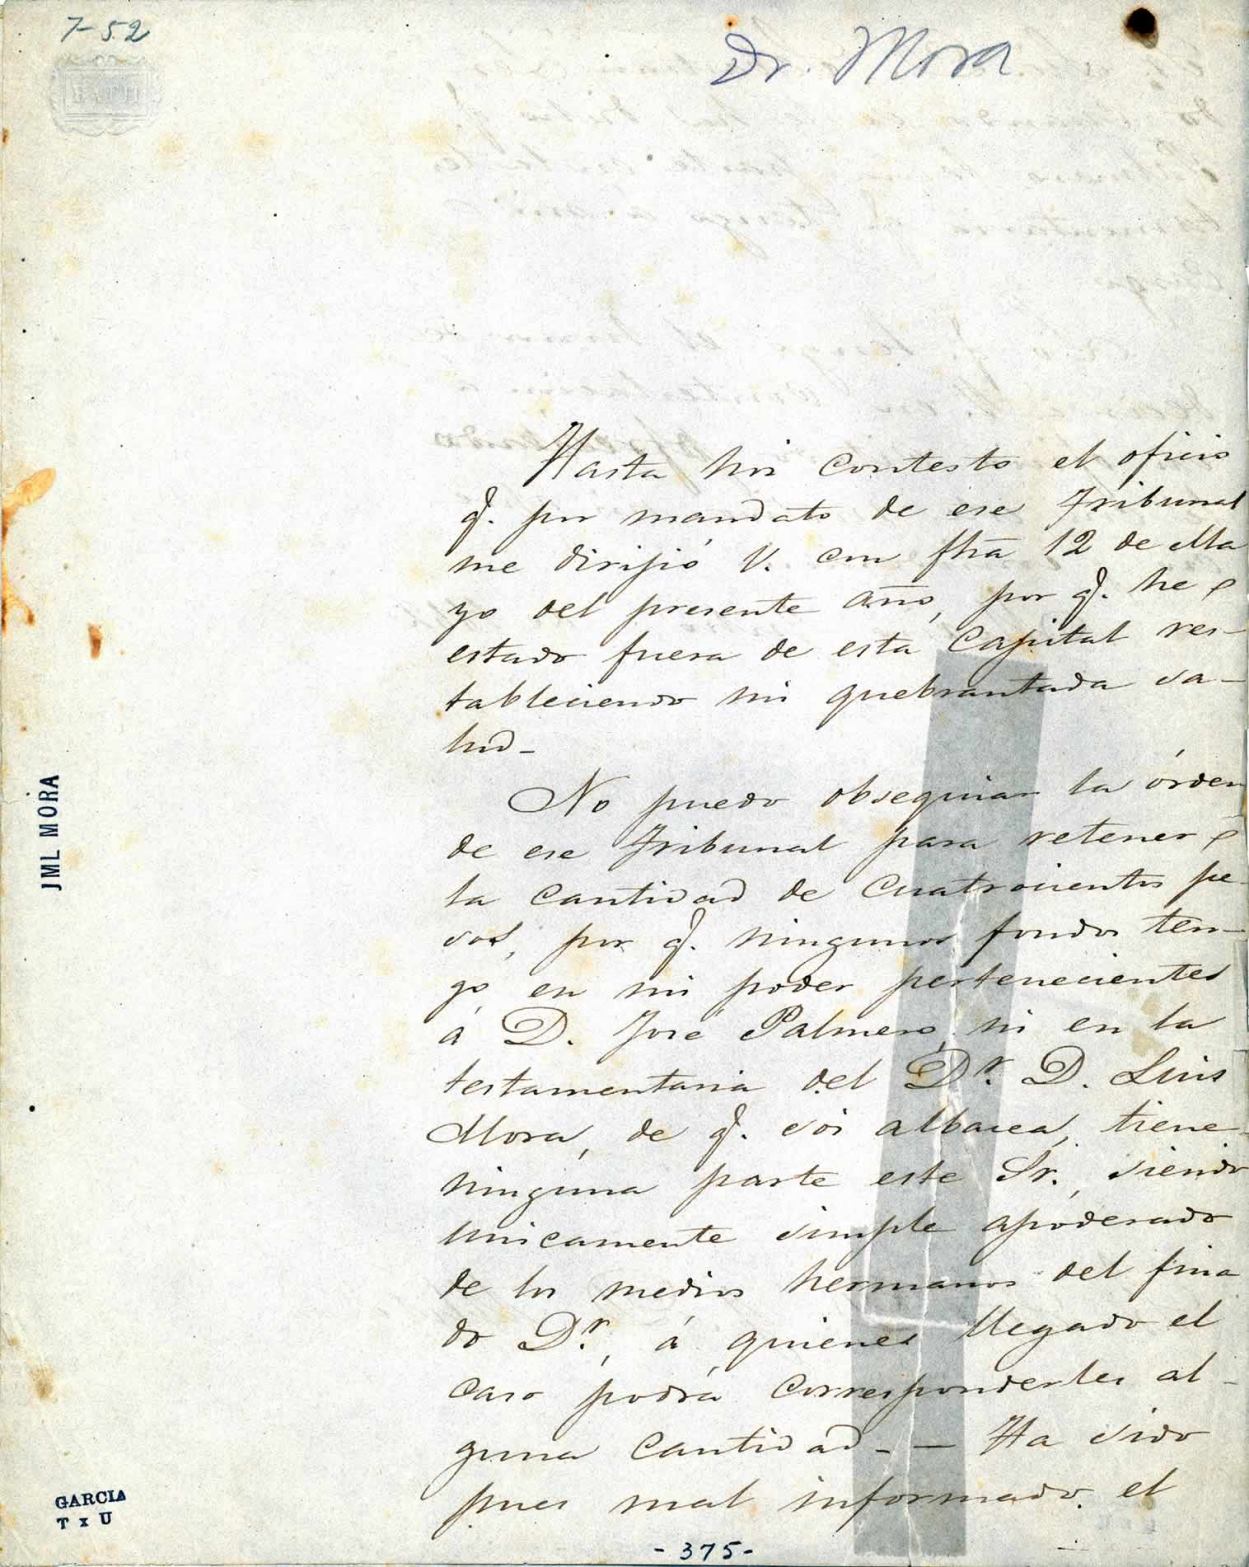 7-52
BATH
Dr. Mora
Hasta hoi contesto el oficio
q. por mandato de ese Tribunal
me dirijió V. con fha 12 de Ma
yo del presente año, por q. he
estado fuera de esta Capital res-
tableciendo mi quebrantada sa-
lud_
No puedo obsequiar la órden
de ese Tribunal para retener
la cantidad de Cuatrocientos pe-
sos, por q. ningunos fondos ten-
go en mi poder pertenecientes
á D. José Palmero, ni en la
testamentaria del Dr. D. Luis
Mora, de q. soi albacea, tiene
ninguna parte este Sr., siendo
unicamente simple apoderado
de los medios hermanos del fina
do Dr., á quienes llegado el
caso podrá corresponderles al-
guna cantidad_ — Ha sido
pues mal informado el
JML MORA
GARCIA
T x U
-375-